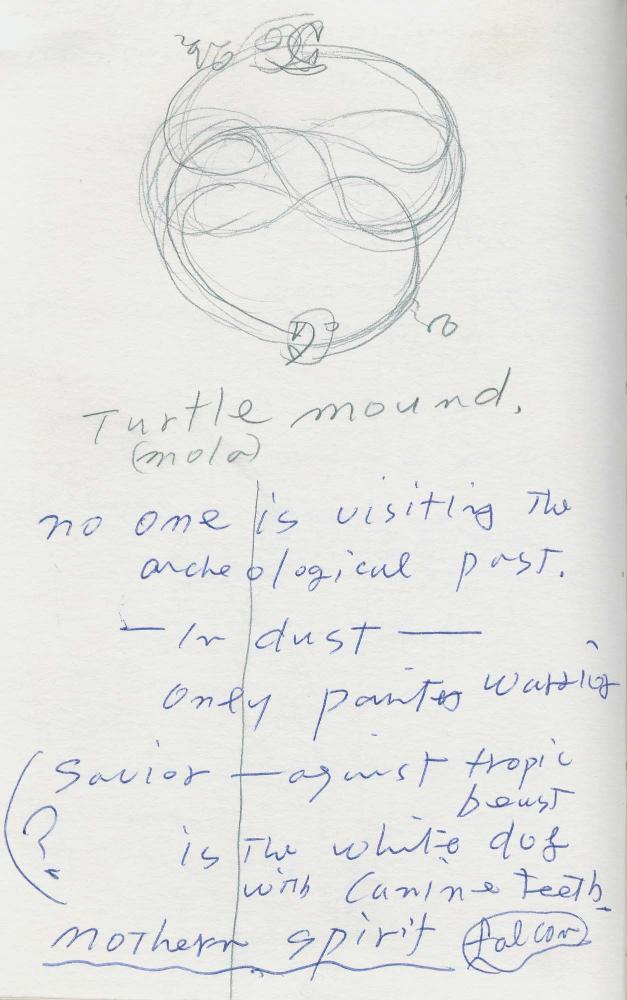 Turtle mound.
(mola)
no one is visiting the
archeological past.
— In dust —
only painted warrior
(Savior — against tropic
beast
?
is the white dog
with canine teeth.
mothern spirit falcon